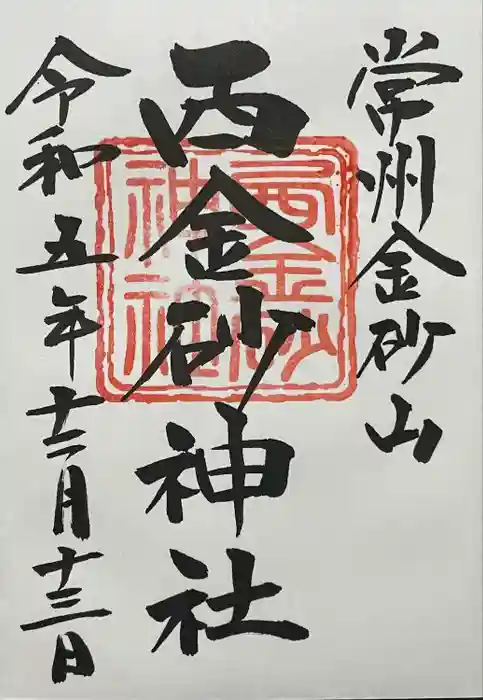 常州金砂山
西金砂神社
西金砂
神社
令和五年十二月十三日